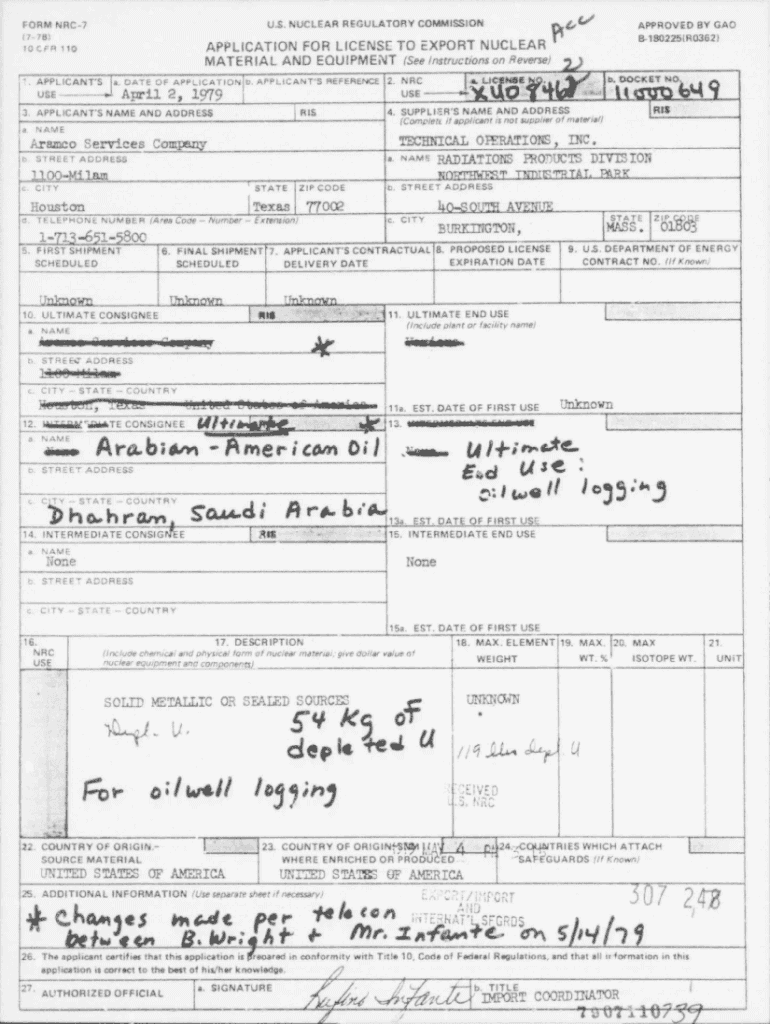 FORM NRC-7
(7-78)
10 CFR 110
U.S. NUCLEAR REGULATORY COMMISSION
APPLICATION FOR LICENSE TO EXPORT NUCLEAR
MATERIAL AND EQUIPMENT (See Instructions on Reverse)
Acc
2
APPROVED BY GAO
B-180225(R0362)
1. APPLICANT'S USE
a. DATE OF APPLICATION
April 2, 1979
b. APPLICANT'S REFERENCE
2. NRC USE
a. LICENSE NO.
XU08462
b. DOCKET NO.
11000649
3. APPLICANT'S NAME AND ADDRESS RIS
a. NAME
Aramco Services Company
b. STREET ADDRESS
1100-Milam
c. CITY STATE ZIP CODE
Houston Texas 77002
d. TELEPHONE NUMBER (Area Code – Number – Extension)
1-713-651-5800
4. SUPPLIER'S NAME AND ADDRESS RIS
(Complete if applicant is not supplier of material)
TECHNICAL OPERATIONS, INC.
a. NAME RADIATIONS PRODUCTS DIVISION
NORTHWEST INDUSTRIAL PARK
b. STREET ADDRESS
40-SOUTH AVENUE
c. CITY STATE ZIP CODE
BURKINGTON, MASS. 01803
5. FIRST SHIPMENT SCHEDULED
Unknown
6. FINAL SHIPMENT SCHEDULED
Unknown
7. APPLICANT'S CONTRACTUAL DELIVERY DATE
Unknown
8. PROPOSED LICENSE EXPIRATION DATE
9. U.S. DEPARTMENT OF ENERGY CONTRACT NO. (If Known)
10. ULTIMATE CONSIGNEE RIS
a. NAME
Aramco Services Company *
b. STREET ADDRESS
1100-Milam
c. CITY – STATE – COUNTRY
Houston, Texas United States of America
11. ULTIMATE END USE
(Include plant or facility name)
11a. EST. DATE OF FIRST USE Unknown
12. INTERMEDIATE CONSIGNEE Ultimate *
a. NAME
None Arabian-American Oil
b. STREET ADDRESS
c. CITY – STATE – COUNTRY
Dhahran, Saudi Arabia
13.
None Ultimate
End Use:
oilwell logging
13a. EST. DATE OF FIRST USE
14. INTERMEDIATE CONSIGNEE RIS
a. NAME
None
b. STREET ADDRESS
c. CITY – STATE – COUNTRY
15. INTERMEDIATE END USE
None
15a. EST. DATE OF FIRST USE
16. NRC USE
17. DESCRIPTION
(Include chemical and physical form of nuclear material; give dollar value of
nuclear equipment and components)
18. MAX. ELEMENT WEIGHT
19. MAX. WT. %
20. MAX ISOTOPE WT.
21. UNIT
SOLID METALLIC OR SEALED SOURCES
UNKNOWN
Depl. U.
54 Kg of
depleted U
119 lbs depl U
For oilwell logging
RECEIVED
U.S. NRC
22. COUNTRY OF ORIGIN–
SOURCE MATERIAL
UNITED STATES OF AMERICA
23. COUNTRY OF ORIGIN–SNM
WHERE ENRICHED OR PRODUCED
UNITED STATES OF AMERICA
MAY 4
24. COUNTRIES WHICH ATTACH
SAFEGUARDS (If Known)
25. ADDITIONAL INFORMATION (Use separate sheet if necessary)
EXPORT/IMPORT
AND
INTERNAT'L SFGRDS
307 248
* Changes made per telecon
between B. Wright + Mr. Infante on 5/14/79
26. The applicant certifies that this application is prepared in conformity with Title 10, Code of Federal Regulations, and that all information in this
application is correct to the best of his/her knowledge.
27. AUTHORIZED OFFICIAL
a. SIGNATURE
Rufino Infante
b. TITLE
IMPORT COORDINATOR
7907110739